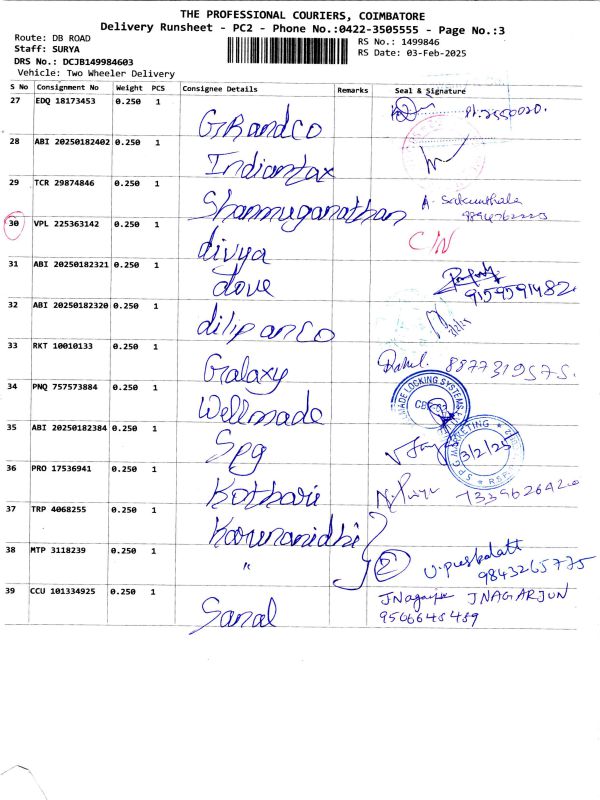 THE PROFESSIONAL COURIERS, COIMBATORE
Delivery Runsheet - PC2 - Phone No.:0422-3505555 - Page No.:3
Route: DB ROAD
RS No.: 1499846
Staff: SURYA
RS Date: 03-Feb-2025
DRS No.: DCJB149984603
Vehicle: Two Wheeler Delivery
S No Consignment No Weight PCS Consignee Details Remarks Seal & Signature
27 EDQ 18173453 0.250 1 GRandCo
28 ABI 20250182402 0.250 1 Indiantax
29 TCR 29874846 0.250 1 Shanmuganathan A. Sakunthala
30 VPL 225363142 0.250 1 divya C/N
31 ABI 20250182321 0.250 1 dove 9159591482
32 ABI 20250182320 0.250 1 dilipanco
33 RKT 10010133 0.250 1 Galaxy Rahul. 8877319575.
34 PNQ 757573884 0.250 1 Wellmade
35 ABI 20250182384 0.250 1 Spg 3/2/25
36 PRO 17536941 0.250 1 Kothari N. Priya 7339626420
37 TRP 4068255 0.250 1 Karunanidhi
38 MTP 3118239 0.250 1 " 2 9843265775
39 CCU 101334925 0.250 1 Sanal JNAGARJUN
9506645489